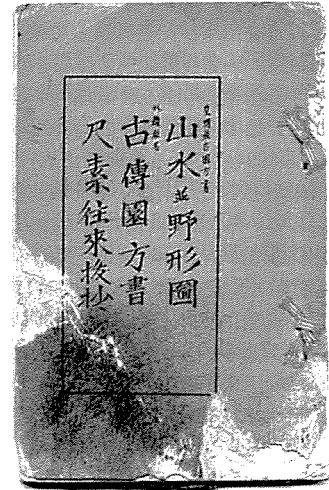 山水並野形圖
古傳園方書
尺素往來抜抄